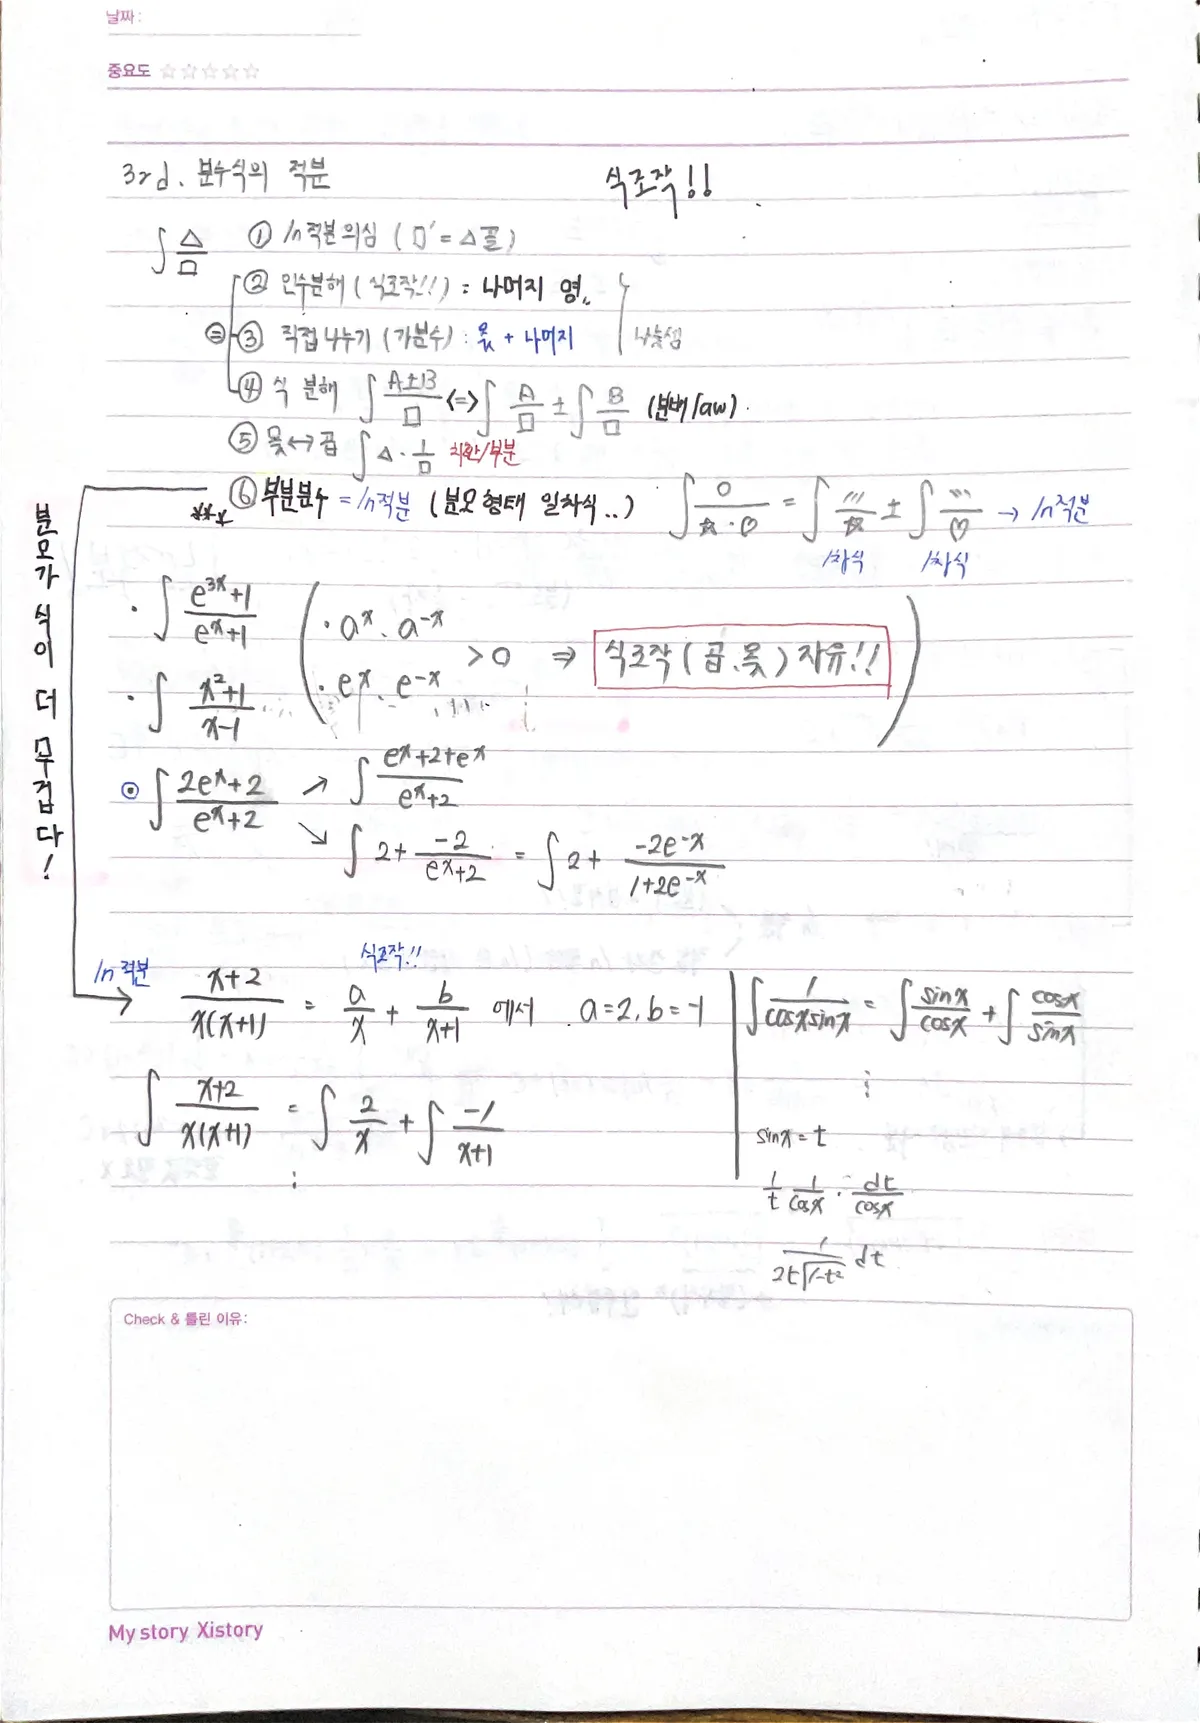 날짜:
중요도 ☆☆☆☆☆
3rd. 분수식의 적분
식조작!!
∫ △/□
① ln적분 의심 (□' = △ 꼴)
② 인수분해 (식조작!!) : 나머지 영..
③ 직접 나누기 (가분수) : 몫 + 나머지
나눗셈
④ 식 분해 ∫ (A±B)/□ <=> ∫ A/□ ± ∫ B/□ (분배 law).
⑤ 몫↔곱 ∫ △ · 1/□ 치환/부분
*** ⑥ 부분분수 = ln적분 (분모 형태 일차식..) ∫ ○/(☆·♡) = ∫ ///☆ ± ∫ ///♡ → ln적분
1차식 1차식
분모가 식이 더 무겁다!
· ∫ (e^{3x}+1)/(e^x+1)
· a^x, a^{-x}
· e^x, e^{-x}
> 0 ⇒ 식조작 (곱, 몫) 자유!!
· ∫ (x²+1)/(x-1)
⊙ ∫ (2e^x+2)/(e^x+2) ↗ ∫ (e^x+2+e^x)/(e^x+2)
↘ ∫ 2 + (-2)/(e^x+2) = ∫ 2 + (-2e^{-x})/(1+2e^{-x})
ln 적분
식조작!!
(x+2)/(x(x+1)) = a/x + b/(x+1) 에서 a=2, b=-1
∫ (x+2)/(x(x+1)) = ∫ 2/x + ∫ (-1)/(x+1)
⋮
∫ 1/(cosx sinx) = ∫ sinx/cosx + ∫ cosx/sinx
⋮
sinx = t
1/t 1/cosx · dt/cosx
1/(2t√(1-t²)) dt
Check & 틀린 이유:
My story Xistory